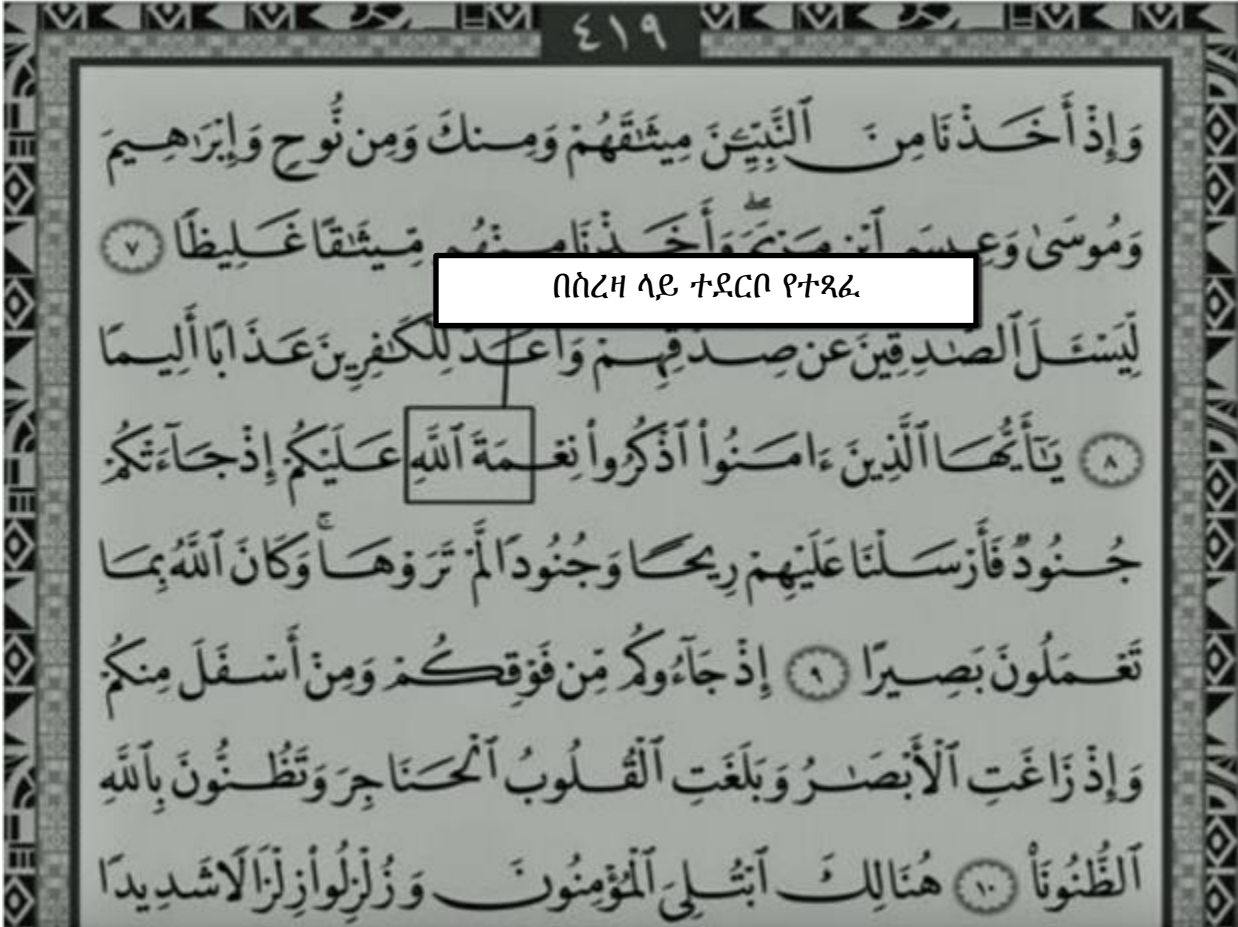 ٤١٩
وَإِذْ أَخَذْنَا مِنَ ٱلنَّبِيِّـۧنَ مِيثَٰقَهُمْ وَمِنكَ وَمِن نُّوحٍ وَإِبْرَٰهِيمَ
وَمُوسَىٰ وَعِيسَى ٱبْنِ مَرْيَمَ ۖ وَأَخَذْنَا مِنْهُم مِّيثَٰقًا غَلِيظًا ٧
በስረዛ ላይ ተደርቦ የተጻፈ
لِّيَسْـَٔلَ ٱلصَّٰدِقِينَ عَن صِدْقِهِمْ وَأَعَدَّ لِلْكَٰفِرِينَ عَذَابًا أَلِيمًا
٨ يَٰٓأَيُّهَا ٱلَّذِينَ ءَامَنُوا۟ ٱذْكُرُوا۟ نِعْمَةَ ٱللَّهِ عَلَيْكُمْ إِذْ جَآءَتْكُمْ
جُنُودٌ فَأَرْسَلْنَا عَلَيْهِمْ رِيحًا وَجُنُودًا لَّمْ تَرَوْهَا ۚ وَكَانَ ٱللَّهُ بِمَا
تَعْمَلُونَ بَصِيرًا ٩ إِذْ جَآءُوكُم مِّن فَوْقِكُمْ وَمِنْ أَسْفَلَ مِنكُمْ
وَإِذْ زَاغَتِ ٱلْأَبْصَٰرُ وَبَلَغَتِ ٱلْقُلُوبُ ٱلْحَنَاجِرَ وَتَظُنُّونَ بِٱللَّهِ
ٱلظُّنُونَا۠ ١٠ هُنَالِكَ ٱبْتُلِىَ ٱلْمُؤْمِنُونَ وَزُلْزِلُوا۟ زِلْزَالًا شَدِيدًا